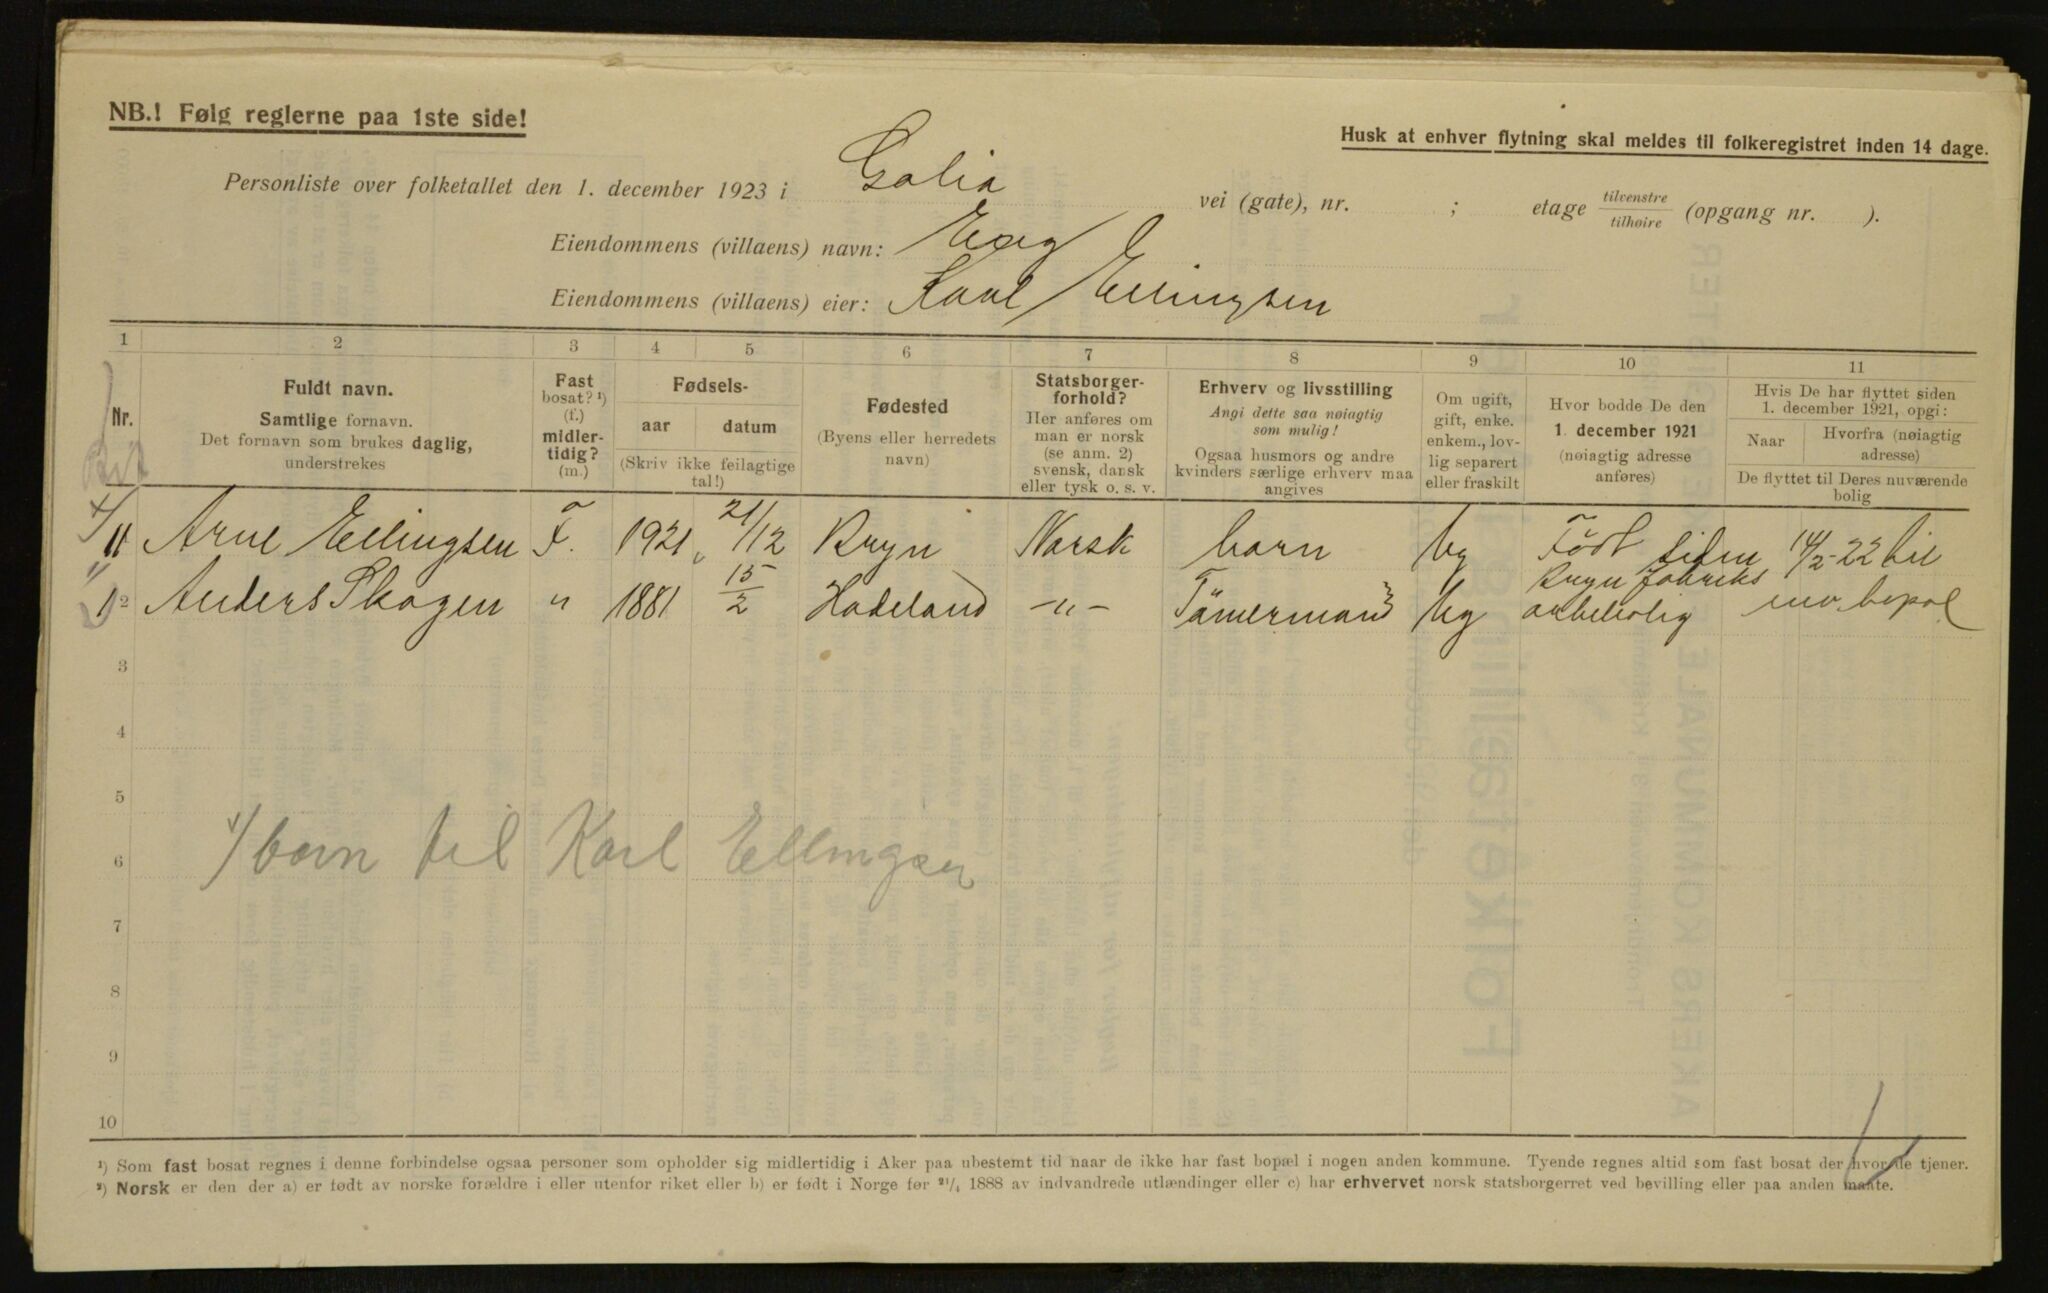 NB.! Følg reglerne paa 1ste side!
Husk at enhver flytning skal meldes til folkeregistret inden 14 dage.
Personliste over folketallet den 1. december 1923 i Galia vei (gate), nr. ; etage tilvenstre tilhøire (opgang nr. ).
Eiendommens (villaens) navn:
Eiendommens (villaens) eier: Karl Ellingsen
1 2 3 4 5 6 7 8 9 10 11
Nr.
Fuldt navn.
Samtlige fornavn.
Det fornavn som brukes daglig,
understrekes
Fast
bosat? ¹)
(f.)
midler-
tidig?
(m.)
Fødsels-
aar datum
(Skriv ikke feilagtige
tal!)
Fødested
(Byens eller herredets
navn)
Statsborger-
forhold?
Her anføres om
man er norsk
(se anm. 2)
svensk, dansk
eller tysk o. s. v.
Erhverv og livsstilling
Angi dette saa nøiagtig
som mulig!
Ogsaa husmors og andre
kvinders særlige erhverv maa
angives
Om ugift,
gift, enke.
enkem., lov-
lig separert
eller fraskilt
Hvor bodde De den
1. december 1921
(nøiagtig adresse
anføres)
Hvis De har flyttet siden
1. december 1921, opgi:
Naar Hvorfra (nøiagtig
adresse)
De flyttet til Deres nuværende
bolig
11 Arne Ellingsen F. 1921 21/12 Bryn Norsk barn Ug Født siden 14/2-22 til
12 Anders Skogen " 1881 15/2 Hadeland -"- Tømermand Ug Bryn Fabriks
arbebolig nuv. bopæl
3
4
5
1/ barn til Karl Ellingsen
6
7
8
9
10
¹) Som fast bosat regnes i denne forbindelse ogsaa personer som opholder sig midlertidig i Aker paa ubestemt tid naar de ikke har fast bopæl i nogen anden kommune. Tyende regnes altid som fast bosat der hvor de tjener.
²) Norsk er den der a) er født av norske forældre i eller utenfor riket eller b) er født i Norge før ²¹/₄ 1888 av indvandrede utlændinger eller c) har erhvervet norsk statsborgerret ved bevilling eller paa anden maate.